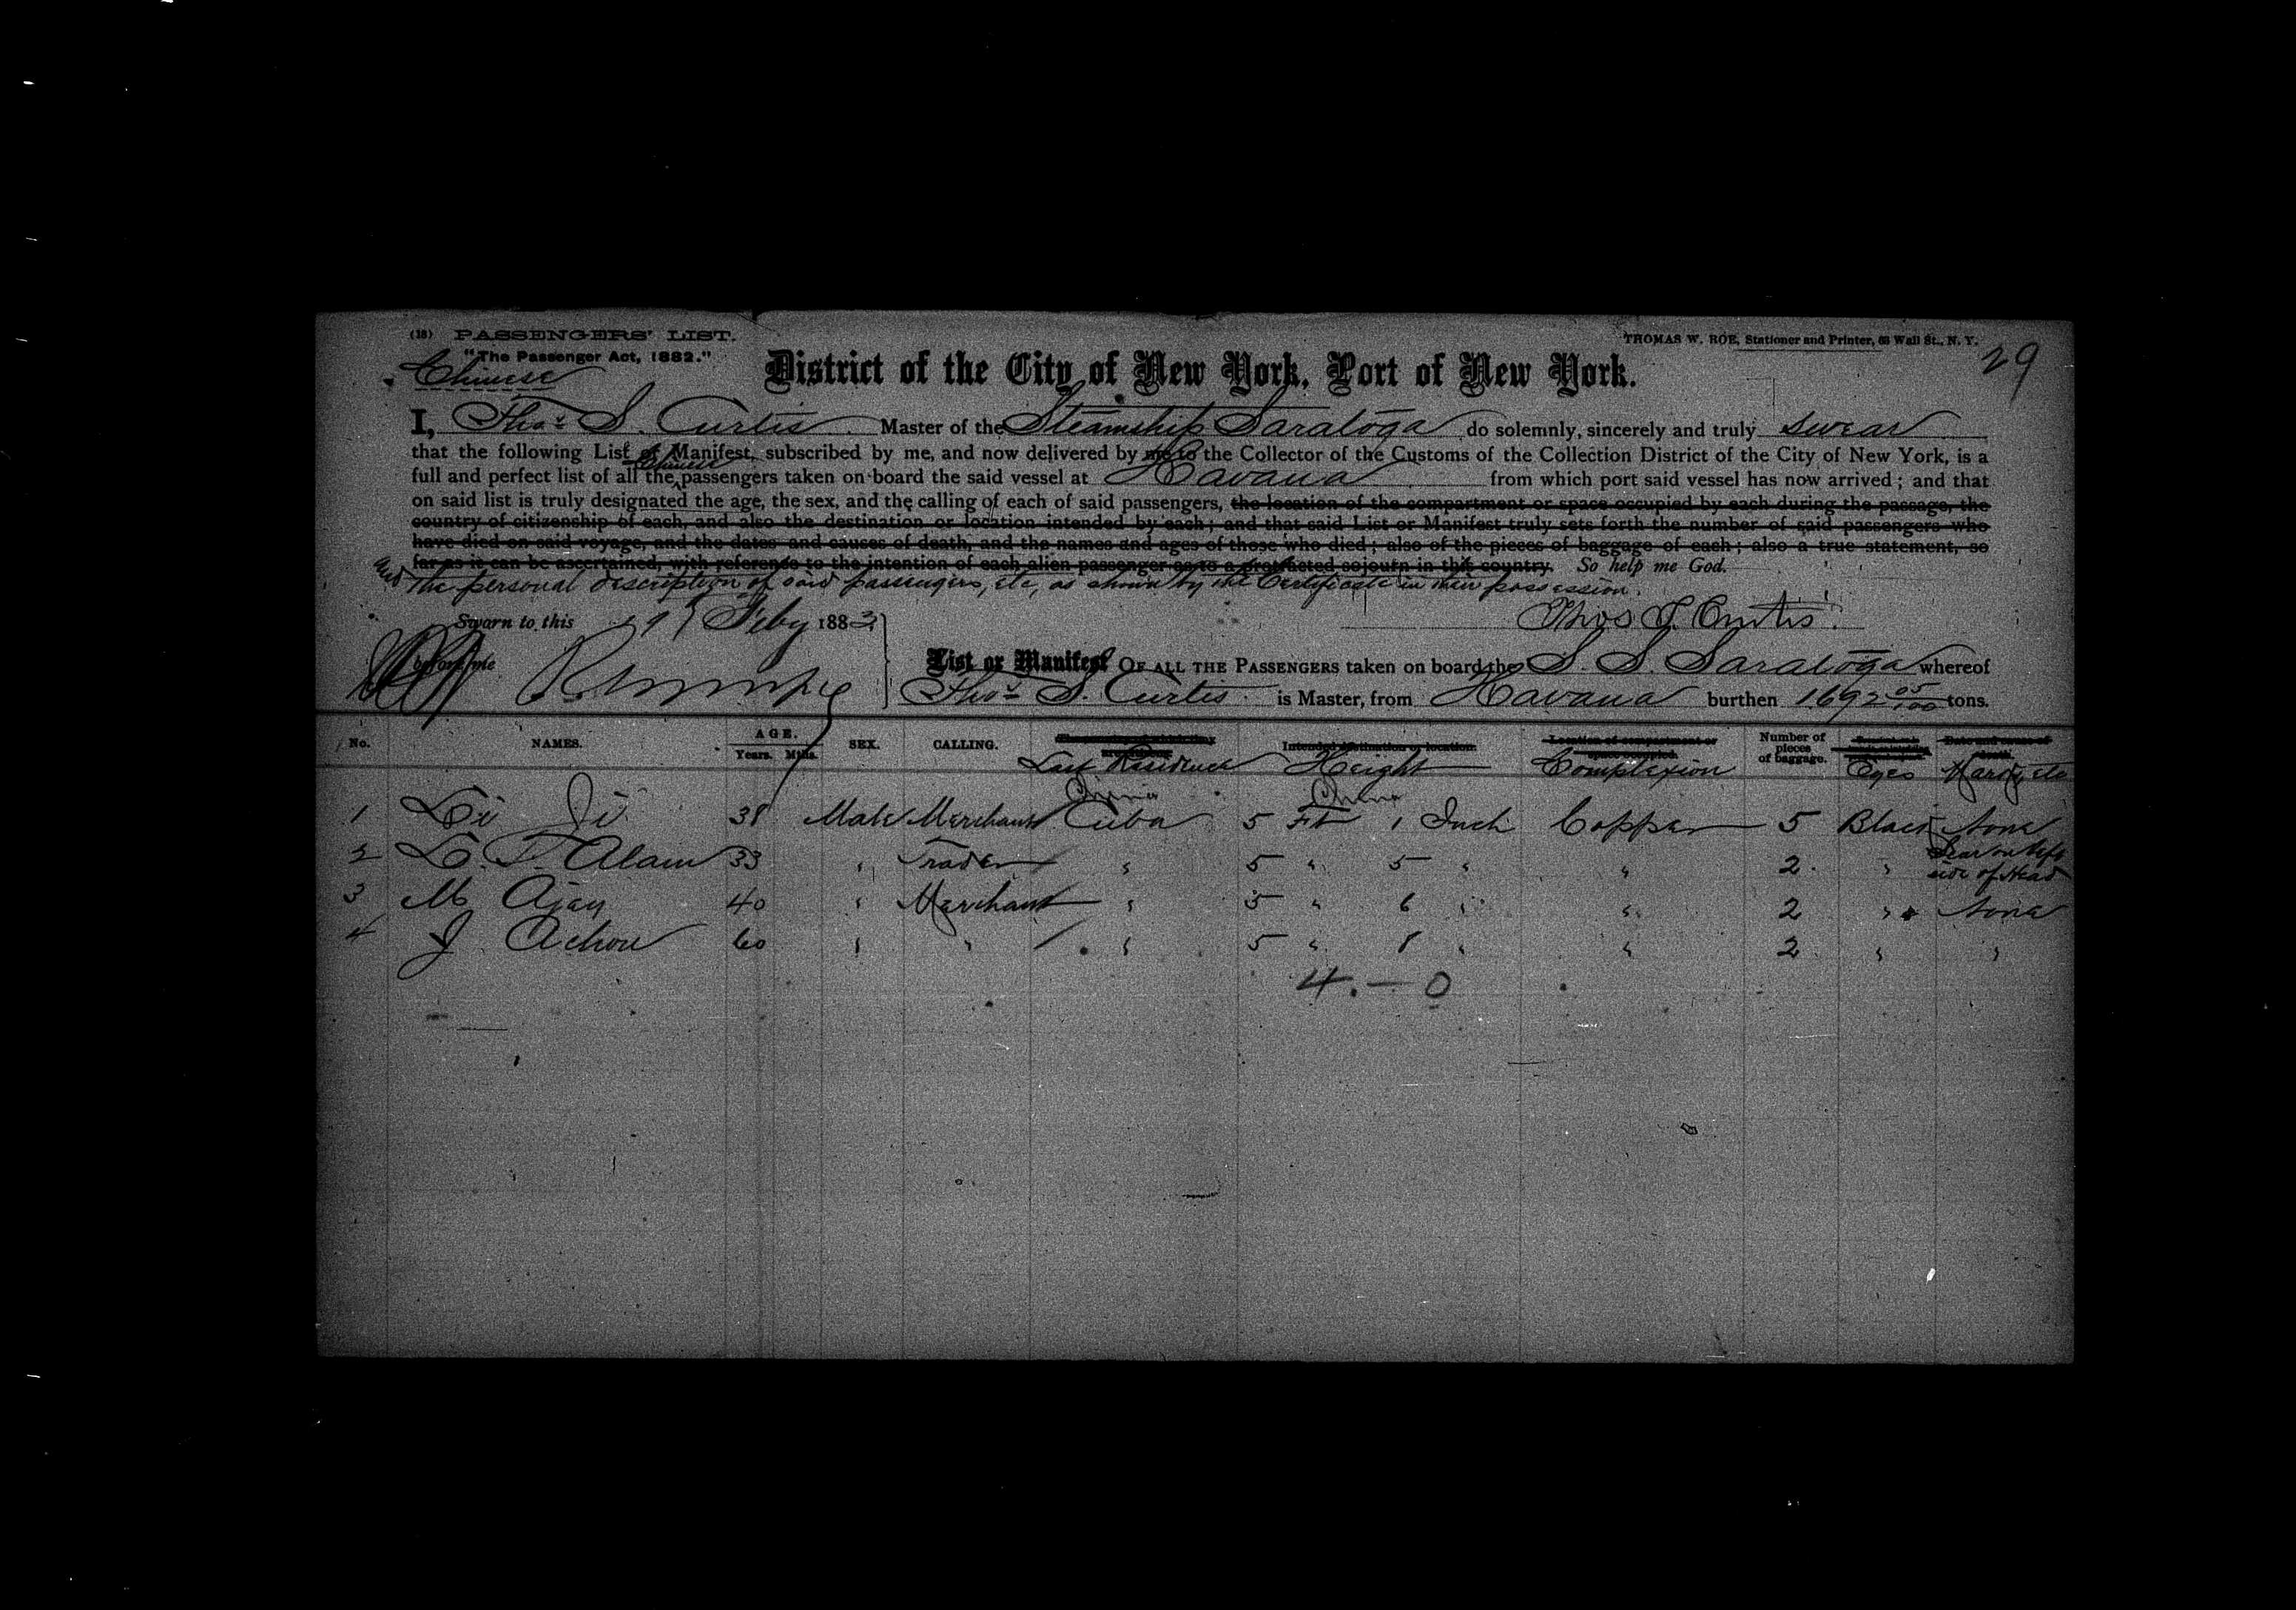 (18) PASSENGERS' LIST.
THOMAS W. ROE, Stationer and Printer, 63 Wall St., N. Y.
29
"The Passenger Act, 1882."
Chinese
District of the City of New York, Port of New York.
I, Thos. S. Curtis Master of the Steamship Saratoga do solemnly, sincerely and truly swear
that the following List or Manifest, subscribed by me, and now delivered by me to the Collector of the Customs of the Collection District of the City of New York, is a
full and perfect list of all the Chinese passengers taken on board the said vessel at Havana from which port said vessel has now arrived; and that
on said list is truly designated the age, the sex, and the calling of each of said passengers, the location of the compartment or space occupied by each during the passage, the
country of citizenship of each, and also the destination or location intended by each; and that said List or Manifest truly sets forth the number of said passengers who
have died on said voyage, and the dates and causes of death, and the names and ages of those who died; also of the pieces of baggage of each; also a true statement, so
far as it can be ascertained, with reference to the intention of each alien passenger as to a protracted sojourn in this country. So help me God.
and the personal description of said passengers, etc, as shown by the Certificate in their possession.
Sworn to this 19 Feby 1883
Thos S. Curtis
before me
List or Manifest OF ALL THE PASSENGERS taken on board the S. S. Saratoga whereof
Thos. S. Curtis is Master, from Havana burthen 1692 05/100 tons.
No. NAMES. AGE. Years. Mths. SEX. CALLING. Last Residence Intended destination or location. Height Location of compartment or Complexion Number of pieces of baggage. Eyes Marks, etc
China China
1 Li Ji 38 Male Merchant Cuba 5 Ft 1 Inch Copper 5 Black None
2 L. T. Alam 33 " Trader " 5 " 5 " " 2 " Scar on left side of Head
3 M Ajay 40 " Merchant " 5 " 6 " " 2 " None
4 J Achou 60 " " " 5 " 8 " " 2 " "
4 - 0